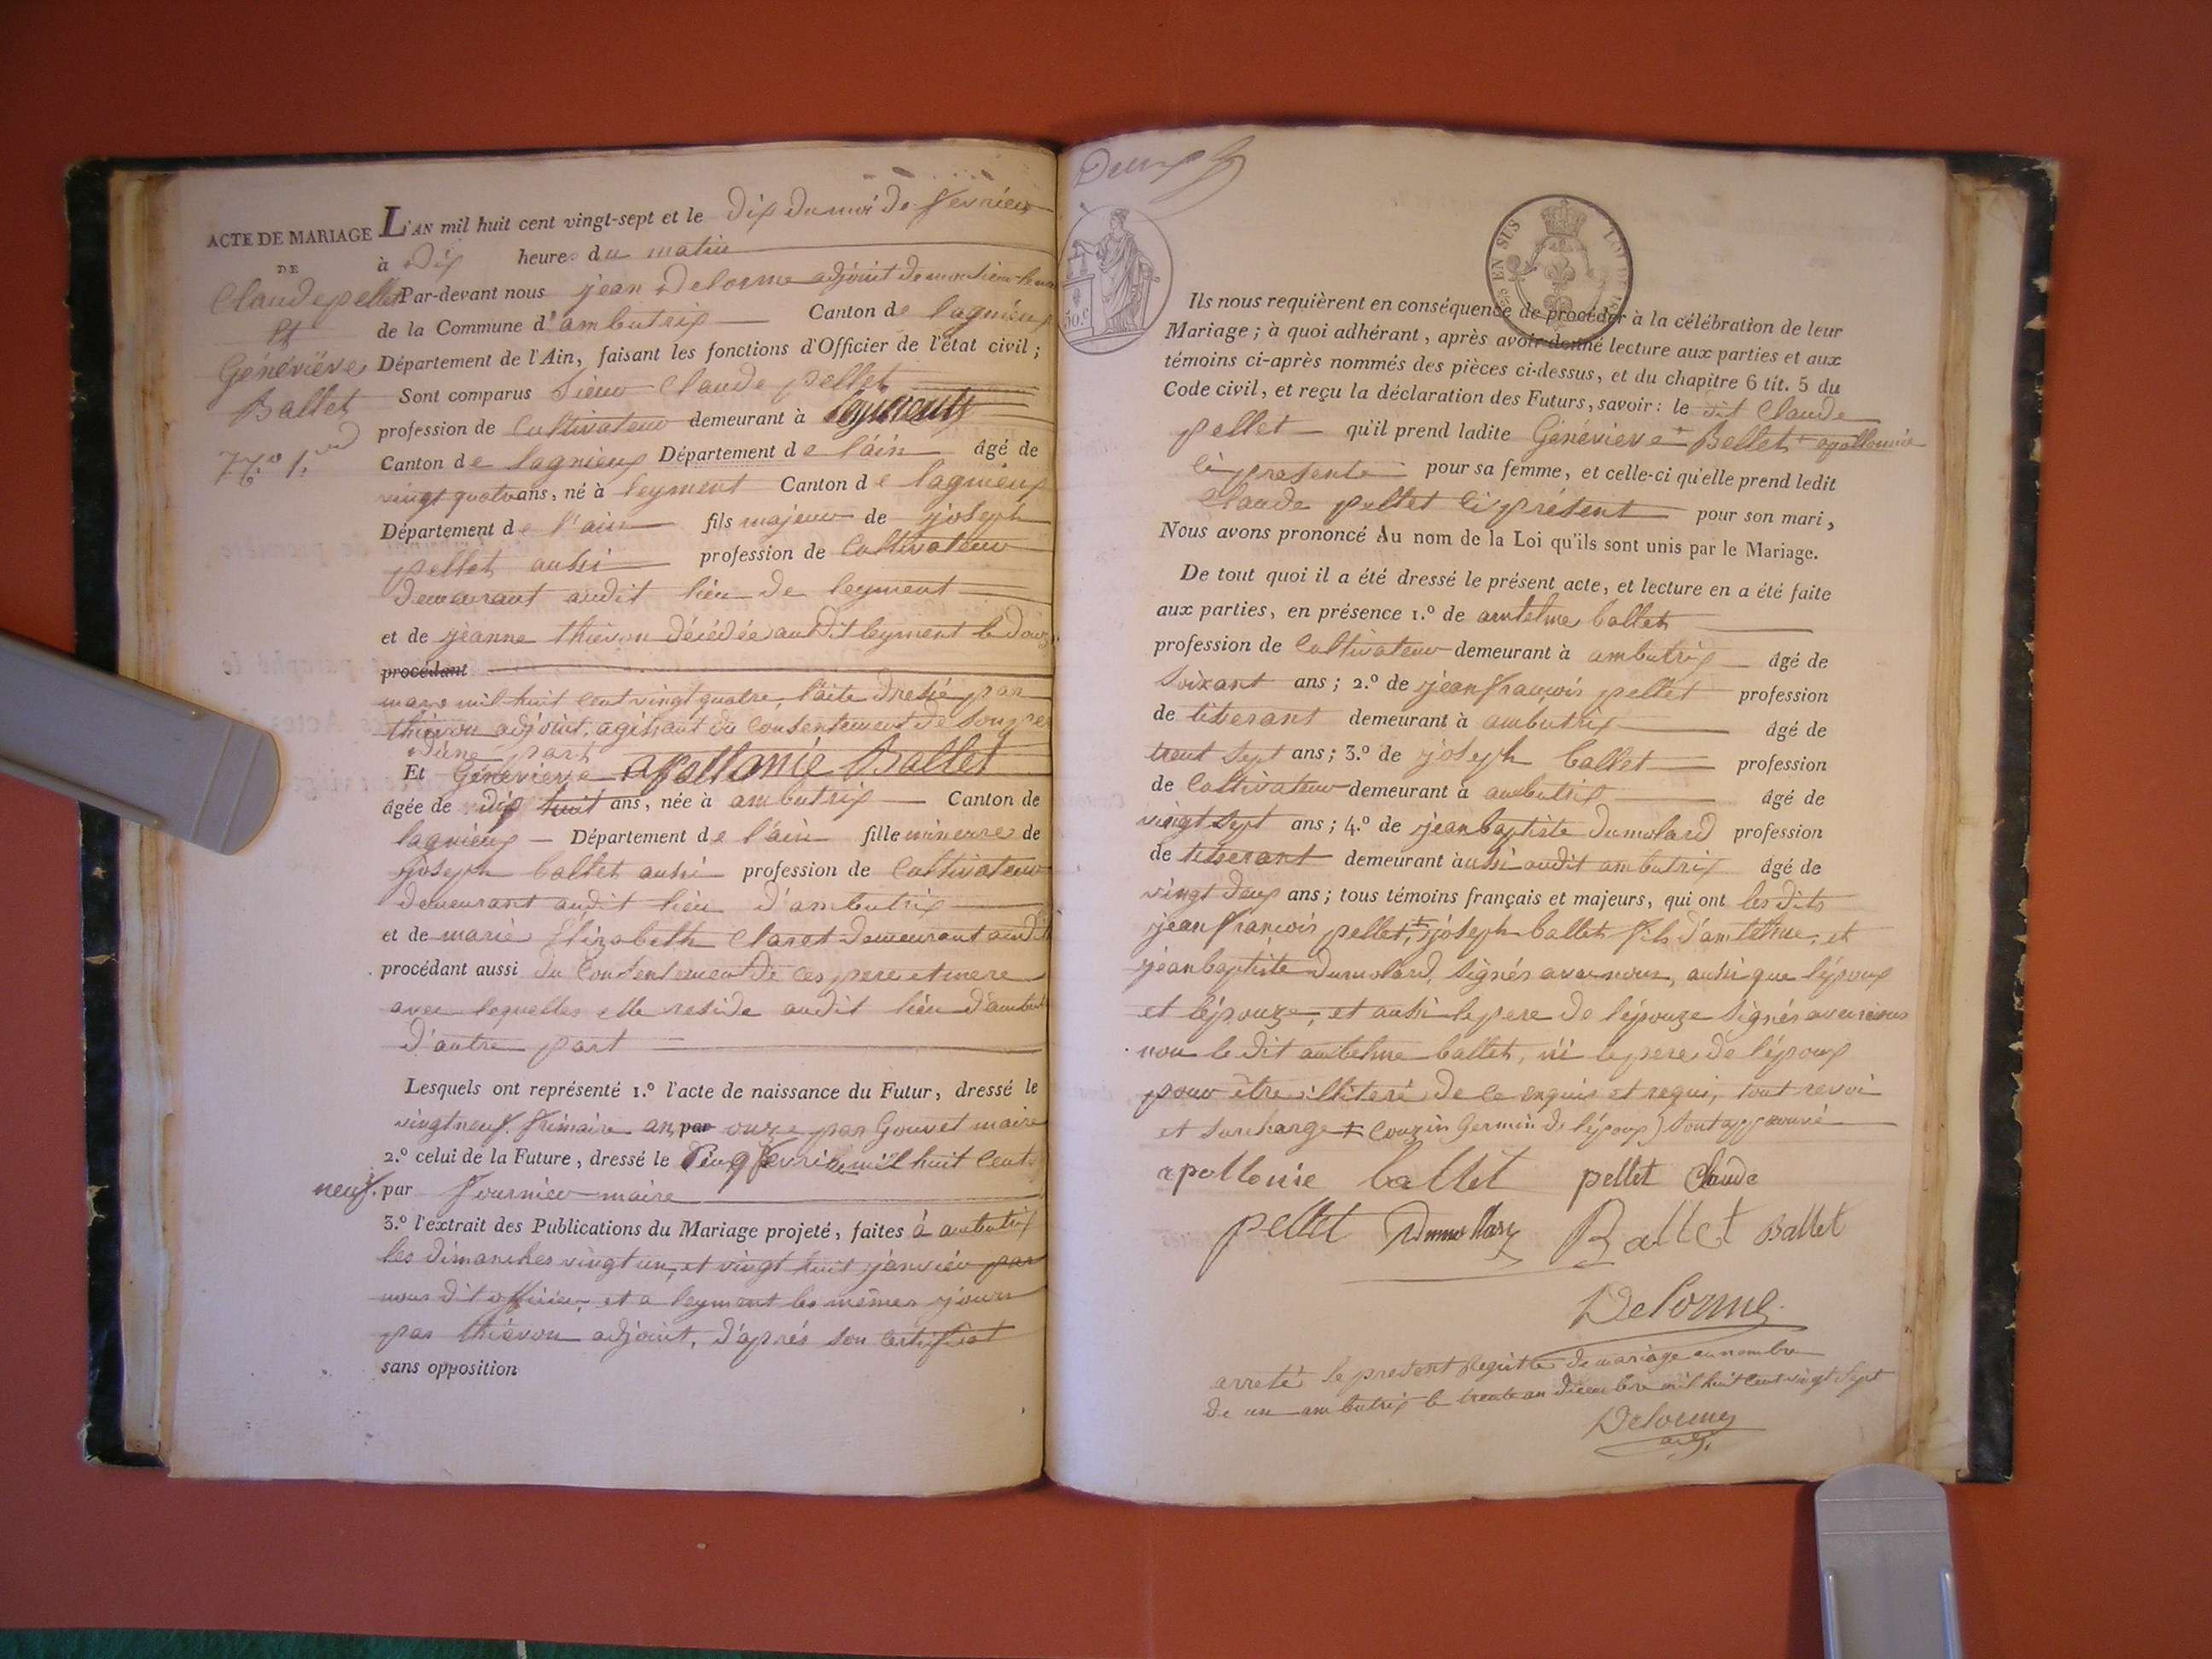 ACTE DE MARIAGE
DE
Claude pellet
Et
Généviève
Ballet
N.o 1.
L'AN mil huit cent vingt-sept et le dix du moi de fevrier
à dix heures du matin
Par-devant nous jean Delorme adjoint de monsieur le
de la Commune d'ambutrix Canton de lagnieux
Département de l'Ain, faisant les fonctions d'Officier de l'état civil ;
Sont comparus Sieur Claude pellet
profession de Cultivateur demeurant à Leyment
Canton de lagnieux Département de l'ain âgé de
vingt quatre ans, né à leyment Canton de lagnieux
Département de l'ain fils majeur de joseph
pellet aussi profession de Cultivateur
demeurant audit lieu de leyment
et de jeanne thievon décédée audit leyment le douze
procédant
mars mil huit cent vingt quatre, l'acte dressé par
thievon adjoint, agissant du consentement de son père
d'une part
Et Généviève apollonie Ballet
âgée de dix huit ans, née à ambutrix Canton de
lagnieux Département de l'ain fille mineure de
joseph ballet aussi profession de Cultivateur
demeurant audit lieu d'ambutrix
et de marie Elizabeth Claret demeurant audit
procédant aussi du Consentement de ces pere et mere
avec lequelles elle reside audit lieu d'ambu
d'autre part
Lesquels ont représenté 1.º l'acte de naissance du Futur, dressé le
vingt neuf frimaire an par onze par Gouvet maire
2.º celui de la Future, dressé le Deux fevrier mil huit Cent
neuf. par fournier maire
3.º l'extrait des Publications du Mariage projeté, faites à ambutrix
les dimanches vingt un, et vingt huit janvier par
nous dit officier, et a leyment les mêmes jours
par thiévon adjoint, d'aprés son certificat
sans opposition
Deux
EN SUS
50.c
Ils nous requièrent en conséquence de procéder à la célébration de leur
Mariage ; à quoi adhérant, après avoir donné lecture aux parties et aux
témoins ci-après nommés des pièces ci-dessus, et du chapitre 6 tit. 5 du
Code civil, et reçu la déclaration des Futurs, savoir : le dit Claude
pellet qu'il prend ladite Généviève Bellet apollonie
ci presente pour sa femme, et celle-ci qu'elle prend ledit
Claude pellet ci présent pour son mari,
Nous avons prononcé Au nom de la Loi qu'ils sont unis par le Mariage.
De tout quoi il a été dressé le présent acte, et lecture en a été faite
aux parties, en présence 1.º de amtelme ballet
profession de Cultivateur demeurant à ambutrix âgé de
Soixant ans ; 2.º de jean françois pellet profession
de titserant demeurant à ambutrix âgé de
trent sept ans ; 3.º de joseph ballet profession
de Cultivateur demeurant à ambutrix âgé de
vingt sept ans ; 4.º de jean baptiste dumolard profession
de titserant demeurant aussi audit ambutrix âgé de
vingt deux ans ; tous témoins français et majeurs, qui ont les dits
jean francois pellet,‡ joseph ballet fils d'amtelme, et
jean baptiste dumolard, signés avec nous, aussi que l'époux
et l'épouze, et aussi le pere de l'épouze signés avec nous
non le dit amtelme ballet, ni le pere de l'époux
pour être illiteré de ce enquis et requi, tout revoi
et surcharge ‡ Couzin Germin de l'époux) sont approuvé
apollonie ballet pellet Claude
pellet Dumollard Ballet Ballet
Delorme
arreté le present Registre de mariage au nombre
de un ambutrix le trente un decembre mil huit cent vingt sept
Delorme
adj.